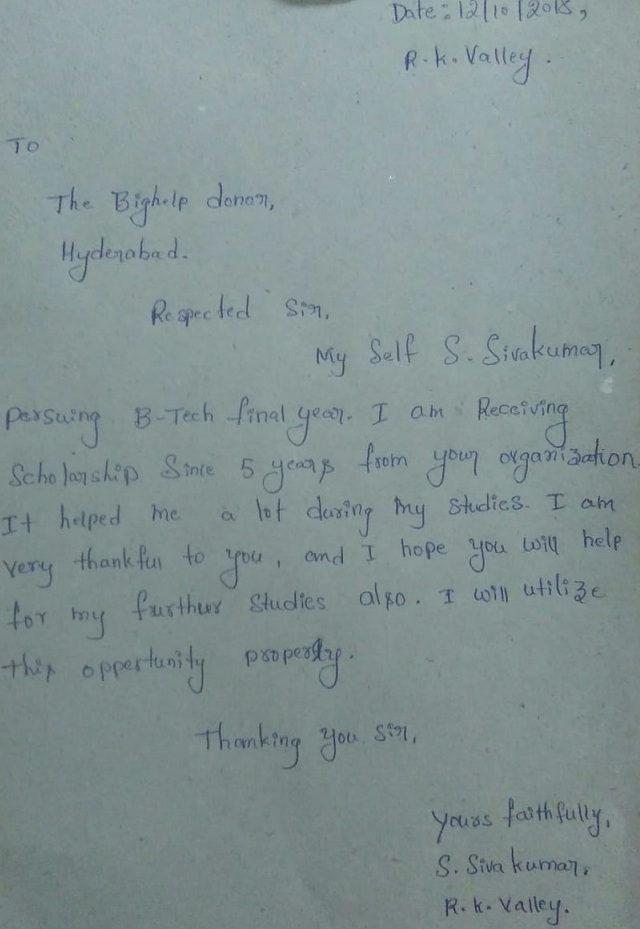 Date: 12/10/2018,
R.k. Valley.
To
The Bighelp donor,
Hyderabad.
Respected Sir,
My Self S. Sivakumar,
persuing B-Tech final year. I am Receiving
Scholarship Since 5 years from your organization.
It helped me a lot during my studies. I am
very thankful to you, and I hope you will help
for my further Studies also. I will utilize
this oppertunity properly.
Thanking you sir,
yours faithfully,
S. Siva kumar,
R.k. Valley.